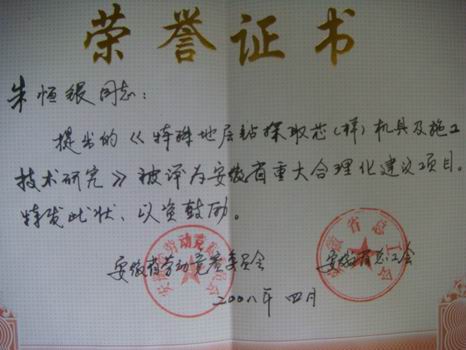 荣誉证书
朱恒银同志：
提出的《特殊地层钻探取芯(样)机具及施工
技术研究》被评为安徽省重大合理化建议项目。
特发此状，以资鼓励。
安徽省劳动竞赛委员会 安徽省总工会
二〇〇八年 四月